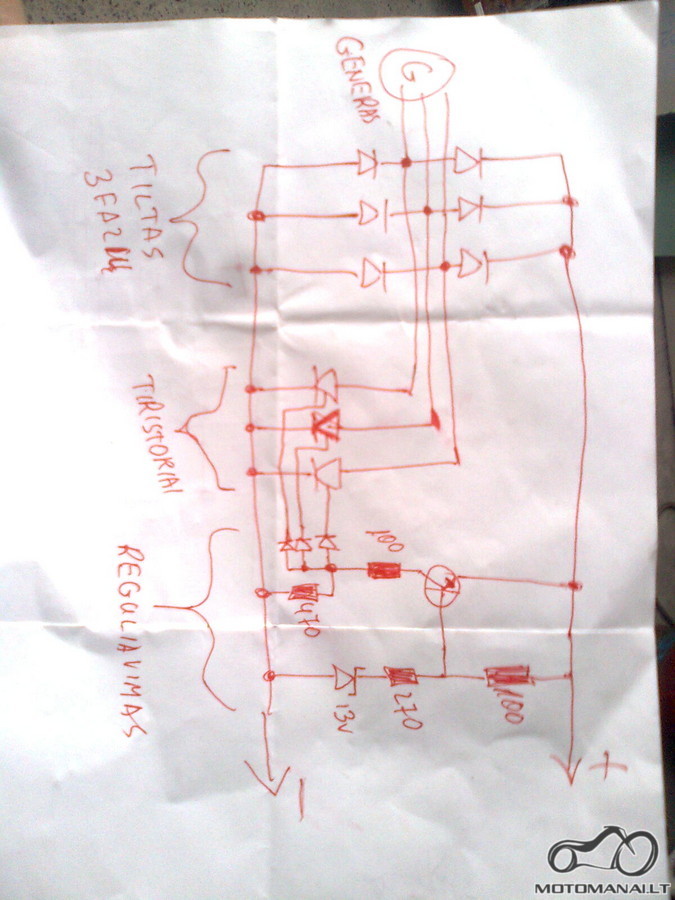 G
GENERAS
TILTAS
3 FAZIŲ
TIRISTORIAI
REGULIAVIMAS
100
470
270
100
13V
+
-
MOTOMANAI.LT